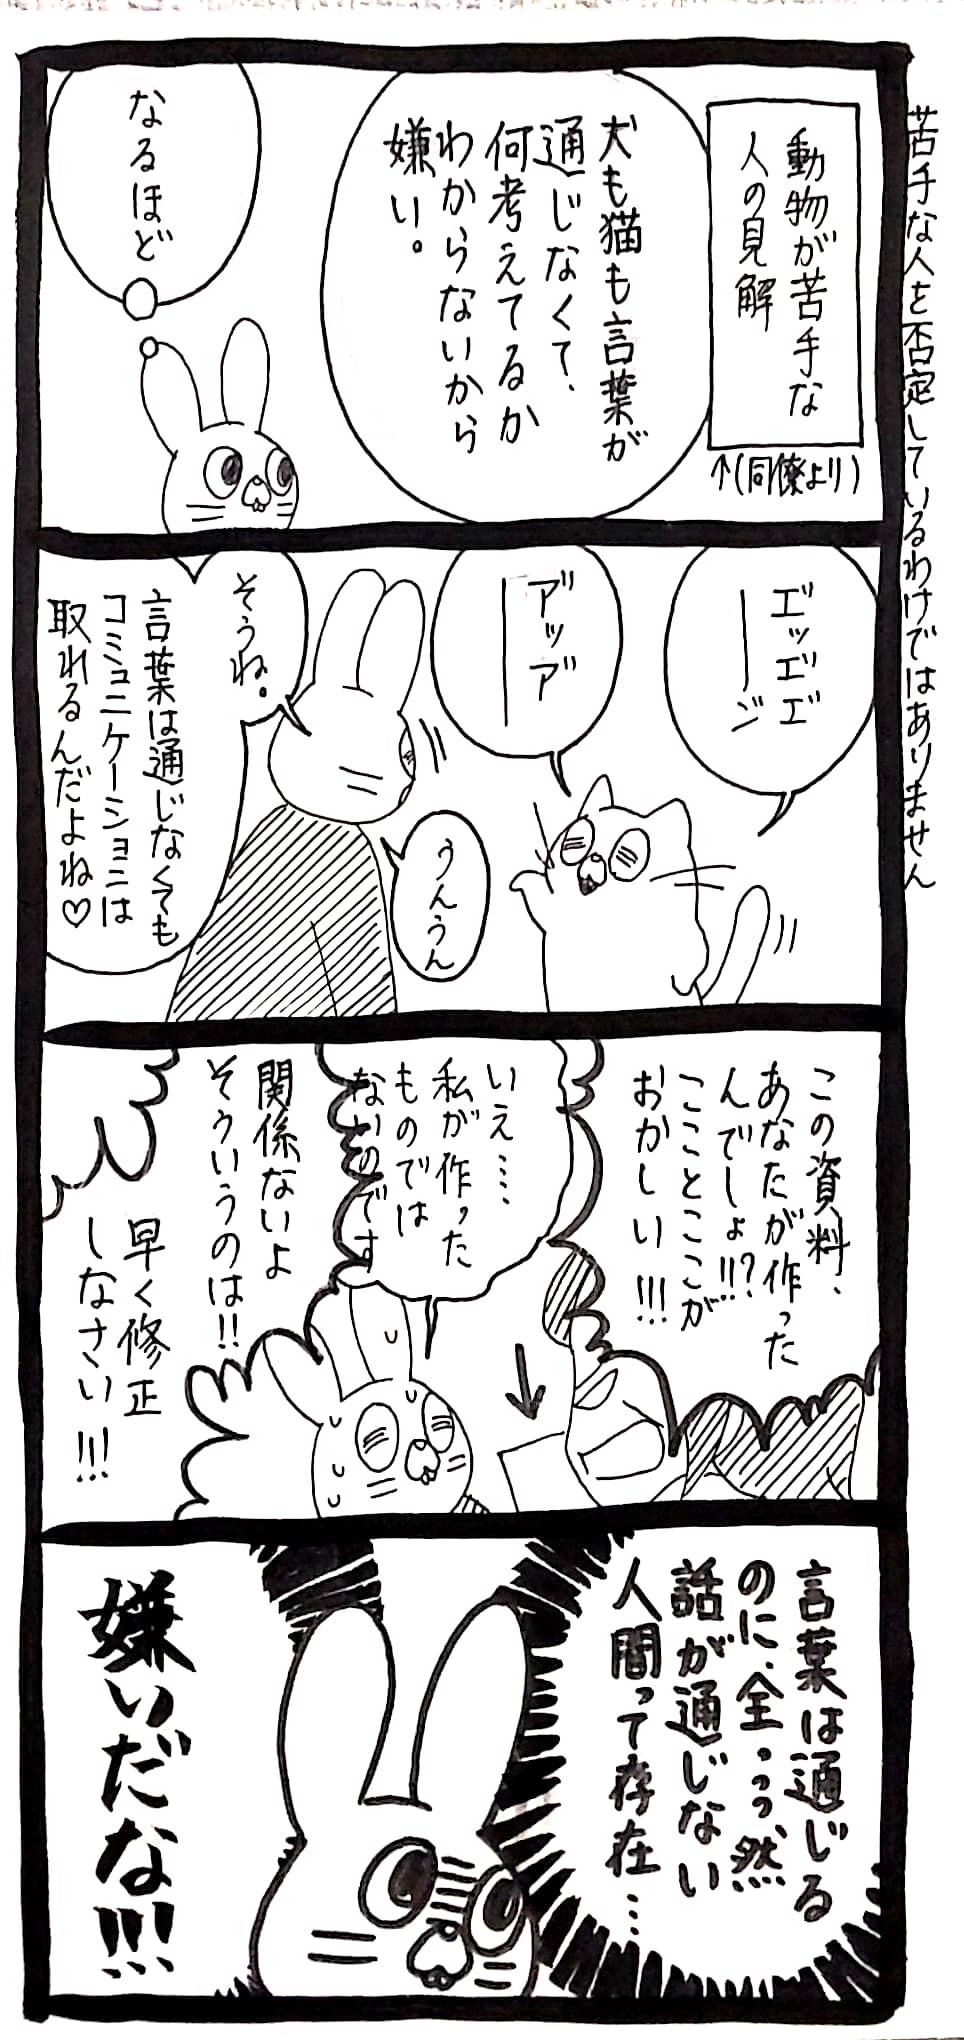 苦手な人を否定しているわけではありません
動物が苦手な
人の見解
↑(同僚より)
犬も猫も言葉が
通じなくて、
何考えてるか
わからないから
嫌い。
なるほど
エ゛ッエ゛エ゛
ージ
ア゛ッア゛
ー
うんうん
そうね。
言葉は通じなくても
コミュニケーションは
取れるんだよね♡
この資料、
あなたが作った
んでしょ!!?
こことここが
おかしい!!!
いえ‥‥
私が作った
ものでは
ないのです
関係ないよ
そういうのは!!
早く修正
しなさい!!!
言葉は通じる
のに、全っっっ然
話が通じない
人間って存在…
嫌いだな!!!